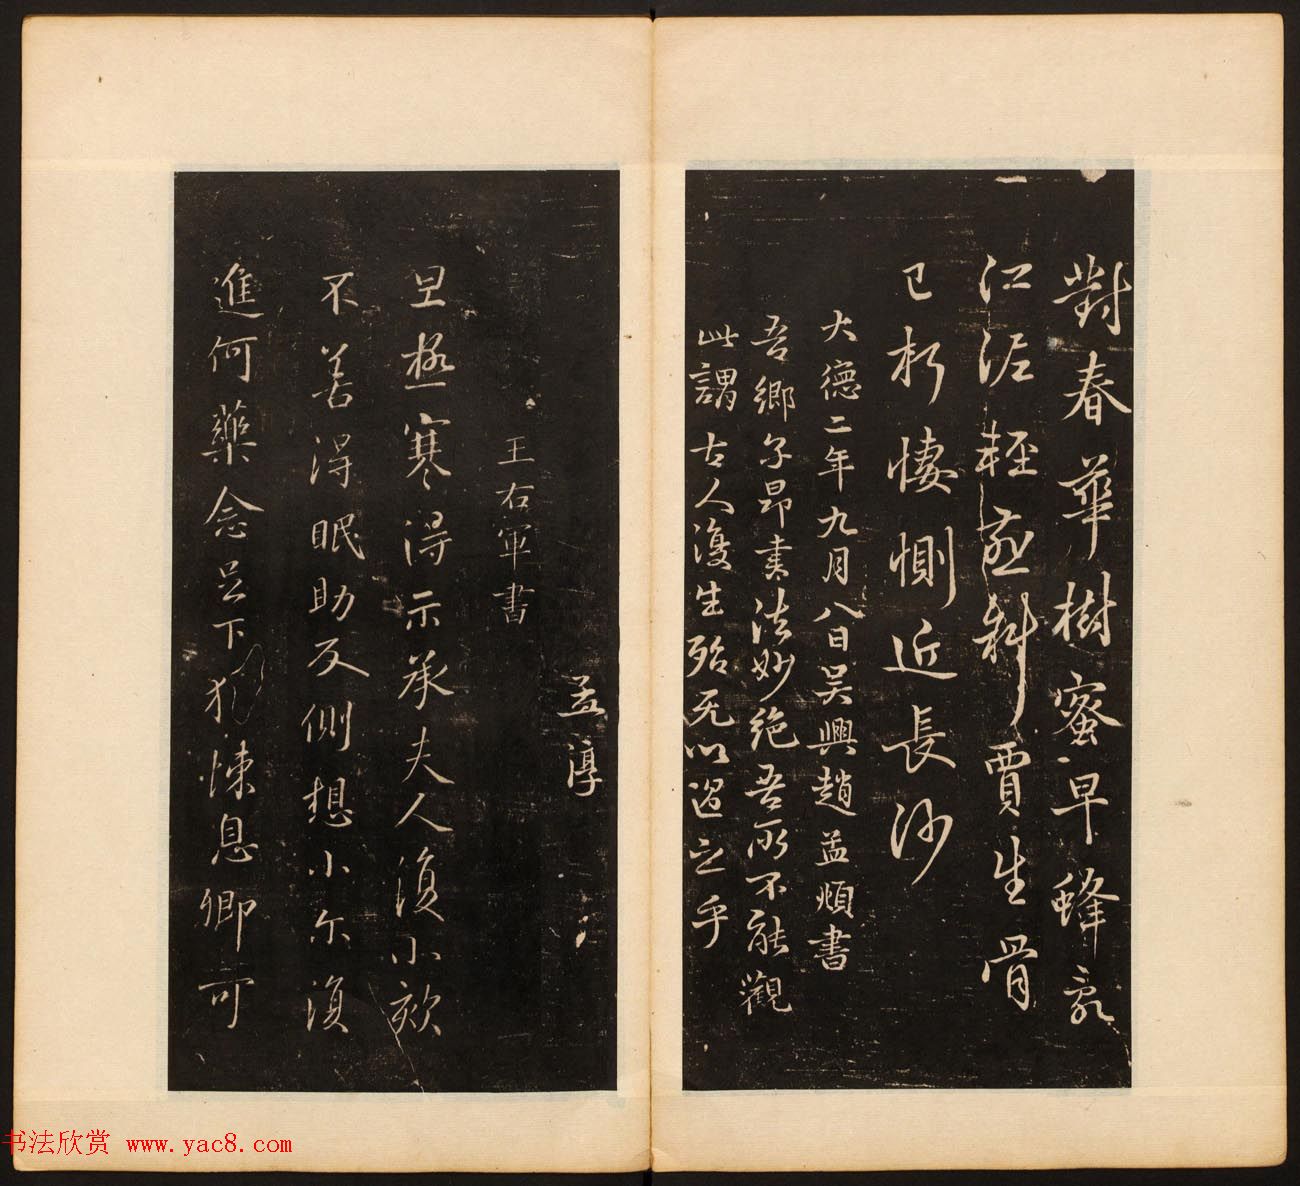 對春華樹蜜早蜂亂
江泥輕燕斜賈生骨
已朽悽惻近長沙
大德二年九月八日吴興趙孟頫書
吾鄉子昂書法妙絶吾所不能觀
此謂古人復生殆无以過之乎
孟淳
王右軍書
旦極寒得示承夫人復小欬
不善得眠助反側想小尔復
進何藥念足下猶悚息卿可
书法欣赏 www.yac8.com